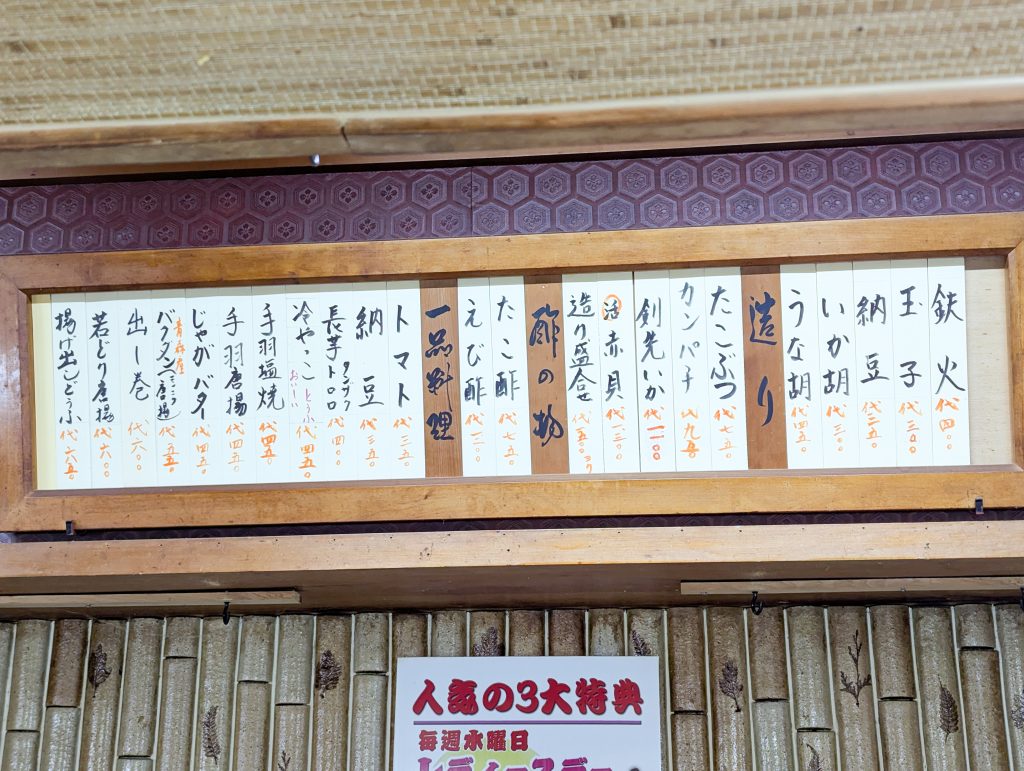 鉄火 代四〇〇
玉子 代三〇〇
納豆 代二五〇
いか胡 代三〇〇
うな胡 代四五〇
造り
たこぶつ 代七五〇
カンパチ 代九五〇
剣先いか 代一一〇〇
活赤貝 代一三〇〇
造り盛合せ 代一五〇〇ヨリ
酢の物
たこ酢 代七五〇
えび酢 代一二〇〇
一品料理
トマト 代三五〇
納豆 代三五〇
長芋トロロ 代四〇〇
冷やっこ 代四五〇
手羽塩焼 代四五〇
手羽唐揚 代四五〇
じゃがバター 代四五〇
代五五〇
出し巻 代六〇〇
若どり唐揚 代六〇〇
揚げ出しどうふ 代六五〇
人気の3大特典
毎週水曜日
レディースデー